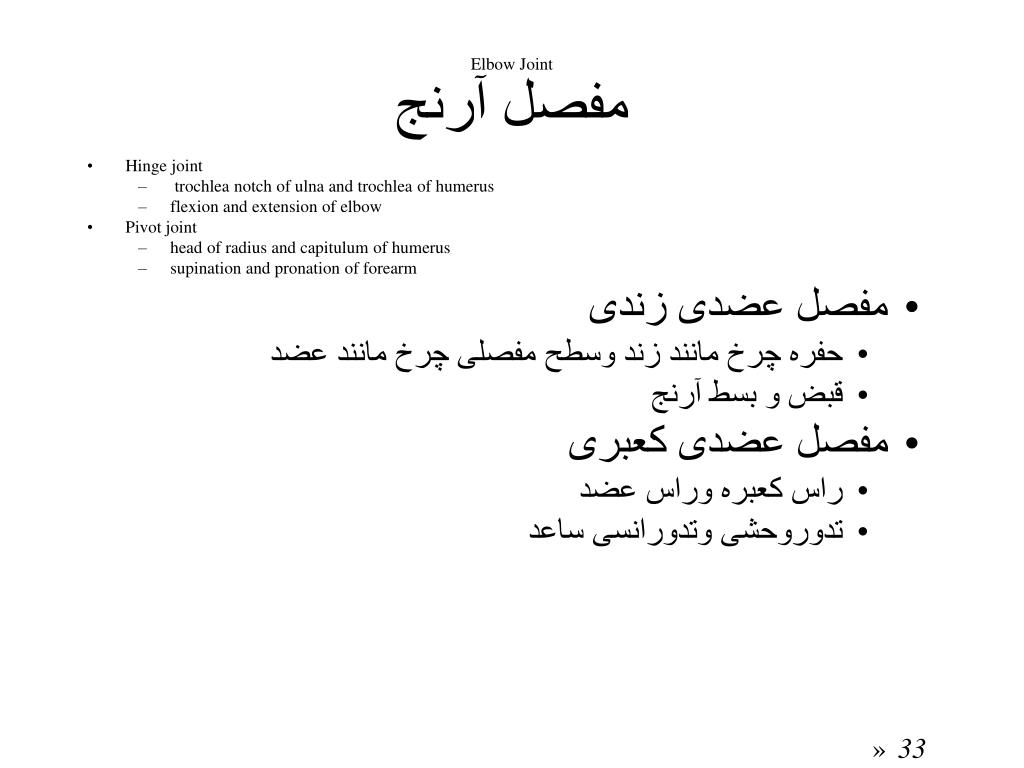 Elbow Joint
مفصل آرنج
• Hinge joint
– trochlea notch of ulna and trochlea of humerus
– flexion and extension of elbow
• Pivot joint
– head of radius and capitulum of humerus
– supination and pronation of forearm
• مفصل عضدی زندی
• حفره چرخ مانند زند وسطح مفصلی چرخ مانند عضد
• قبض و بسط آرنج
• مفصل عضدی کعبری
• راس کعبره وراس عضد
• تدوروحشی وتدورانسی ساعد
» 33